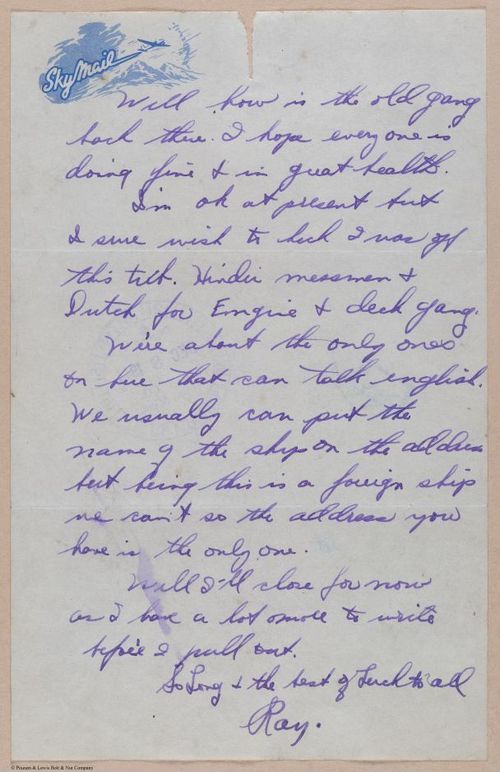 Sky Mail
Well how is the old gang
back there. I hope everyone is
doing fine & in great health.
I'm ok at present but
I sure wish to heck I was off
this tub. Hindu messmen &
Dutch for Emgine & deck gang.
We're about the only ones
on here that can talk english.
We usually can put the
name of the ship on the address
but being this is a foreign ship
we can't so the address you
have is the only one.
Well I'll close for now
as I have a lot more to write
before I pull out.
So Long & the best of Luck to all
Ray.
© Pearson & Lewis Bolt & Nut Company